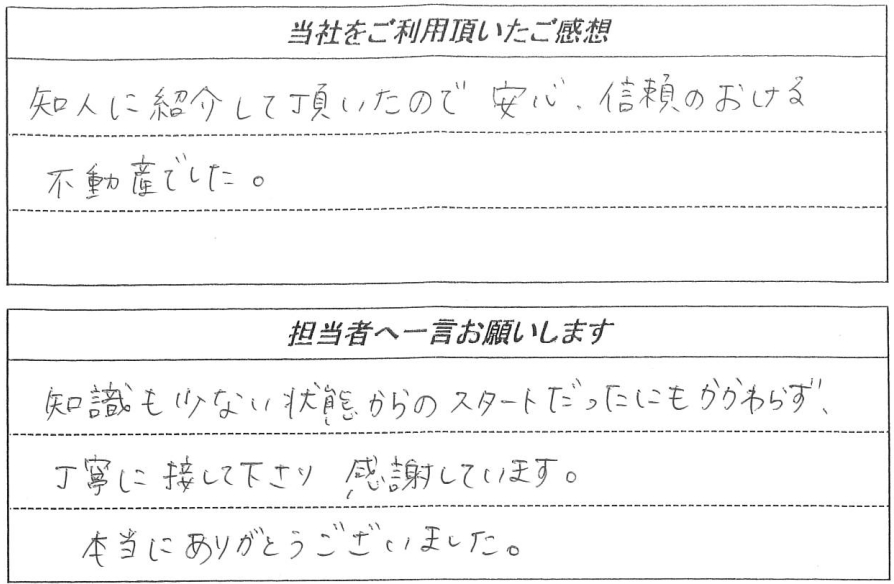 当社をご利用頂いたご感想
知人に紹介して頂いたので 安心、信頼のおける
不動産でした。
担当者へ一言お願いします
知識も少ない状態からのスタートだったにもかかわらず、
丁寧に接して下さり 感謝しています。
本当にありがとうございました。